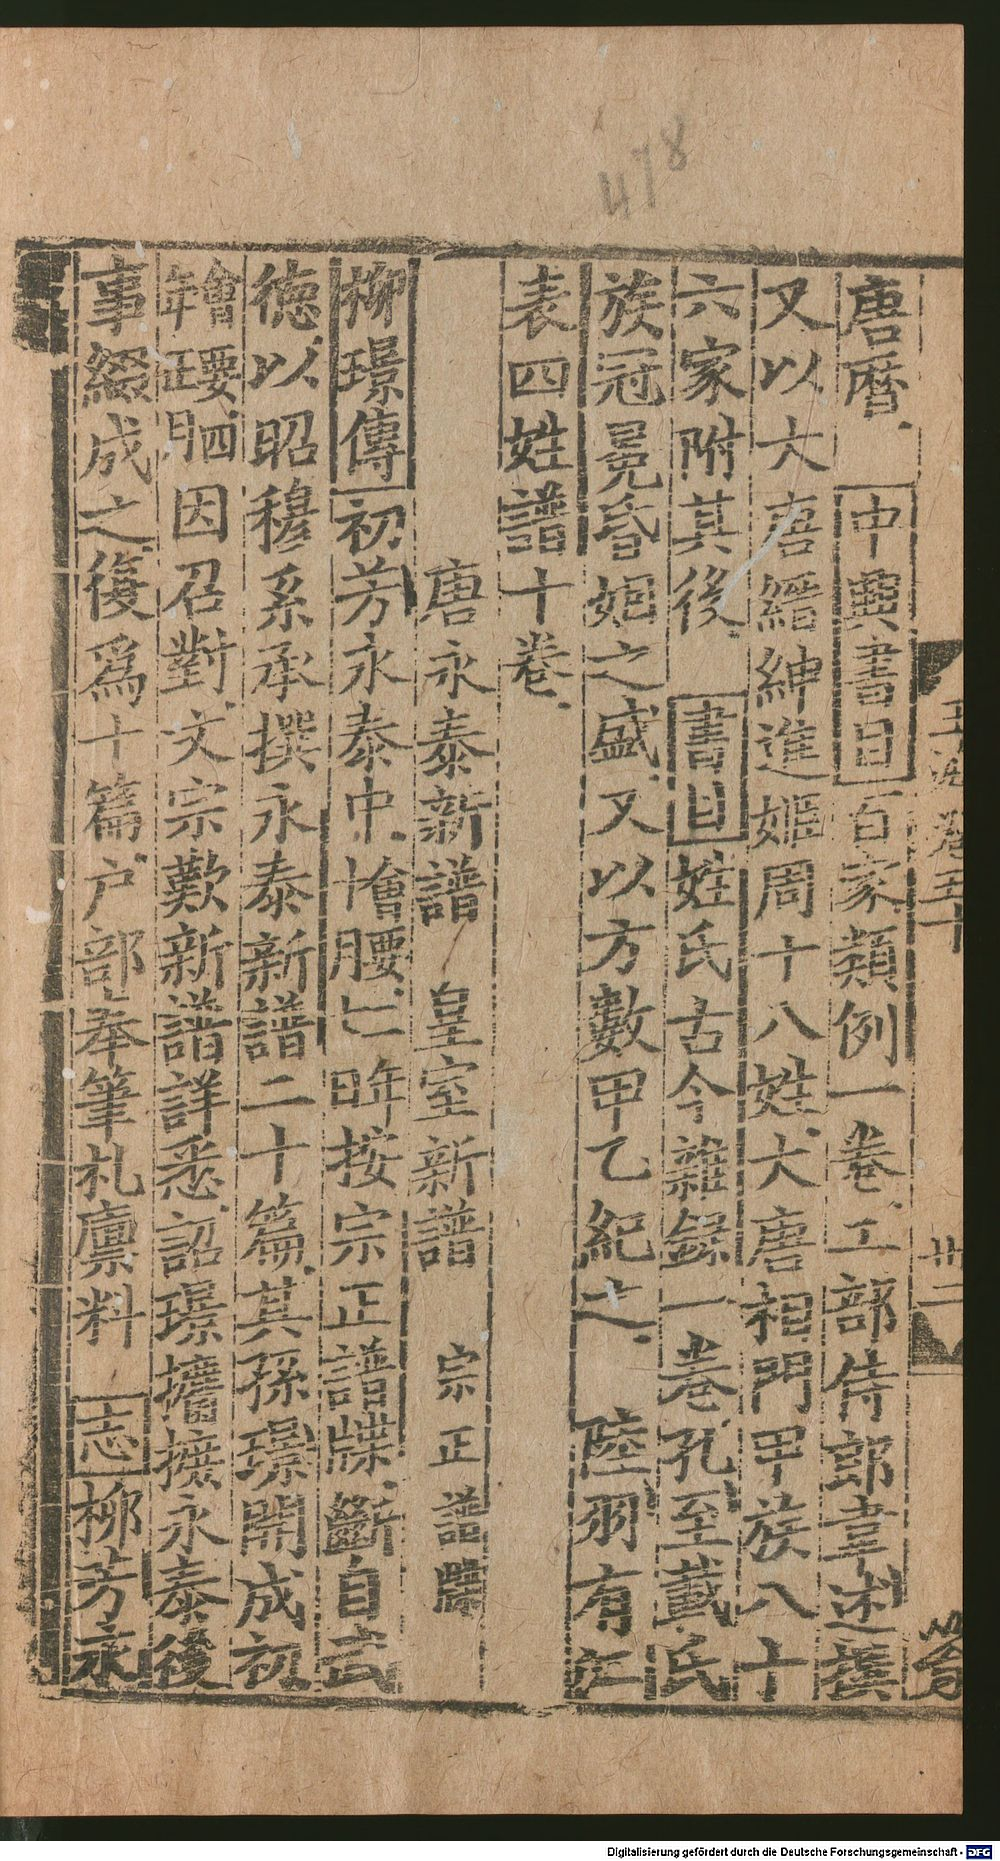 478
唐曆 中興書目百家類例一卷工部侍郎韋述撰
又以大唐縉紳進姬周十八姓大唐相門甲族八十
六家附其後 書目姓氏古今雜錄一卷孔至載氏
族冠冕昏姻之盛又以方數甲乙紀之 陸羽有江
表四姓譜十卷
唐永泰新譜 皇室新譜 宗正譜牒
柳璟傳初芳永泰中按宗正譜牒斷自武
德以昭穆系承撰永泰新譜二十篇其孫璟開成初
因召對文宗歎新譜詳悉詔璟攟摭永泰後
事綴成之復為十篇户部奉筆札廩料 志柳芳永
玉海卷五十
廿二
Digitalisierung gefördert durch die Deutsche Forschungsgemeinschaft - DFG